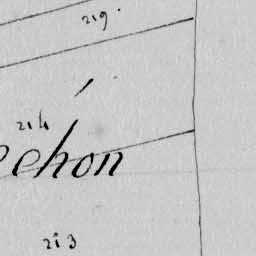 219.
214
echon
213